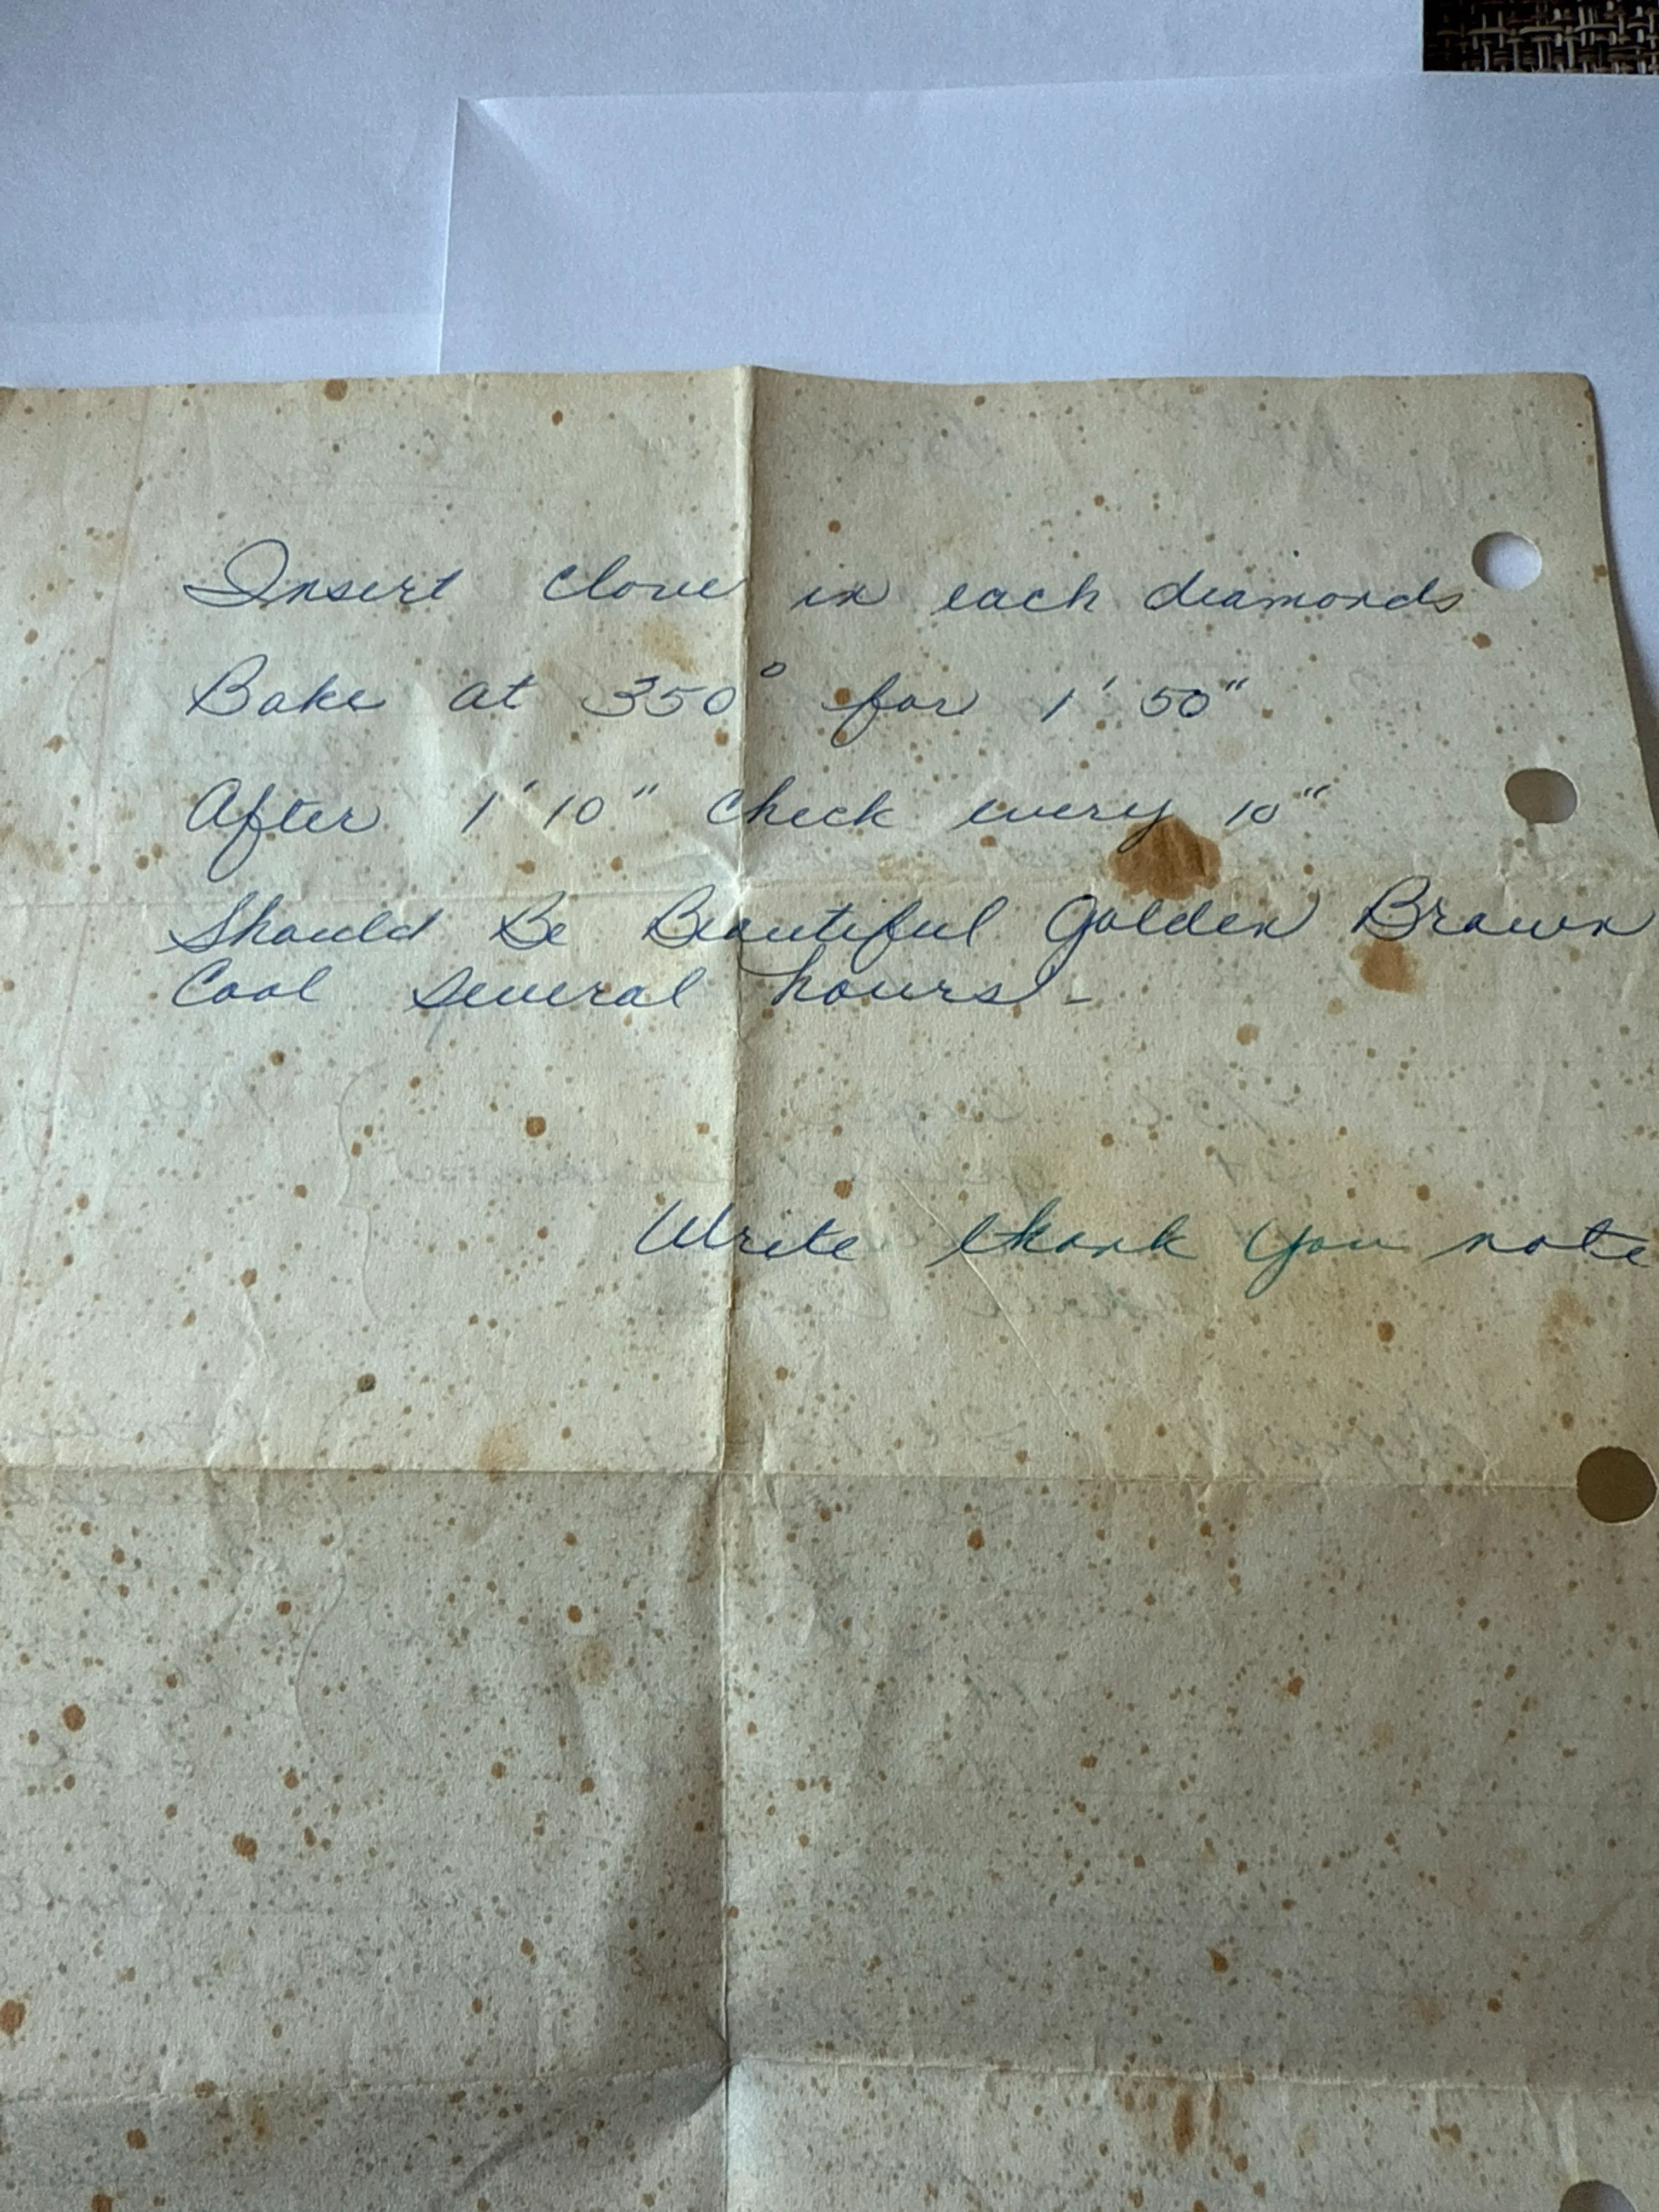 Insert clove in each diamonds
Bake at 350° for 1' 50".
After 1' 10" check every 10"
Should Be Beautiful Golden Brown
Cool several hours -
Write thank you note